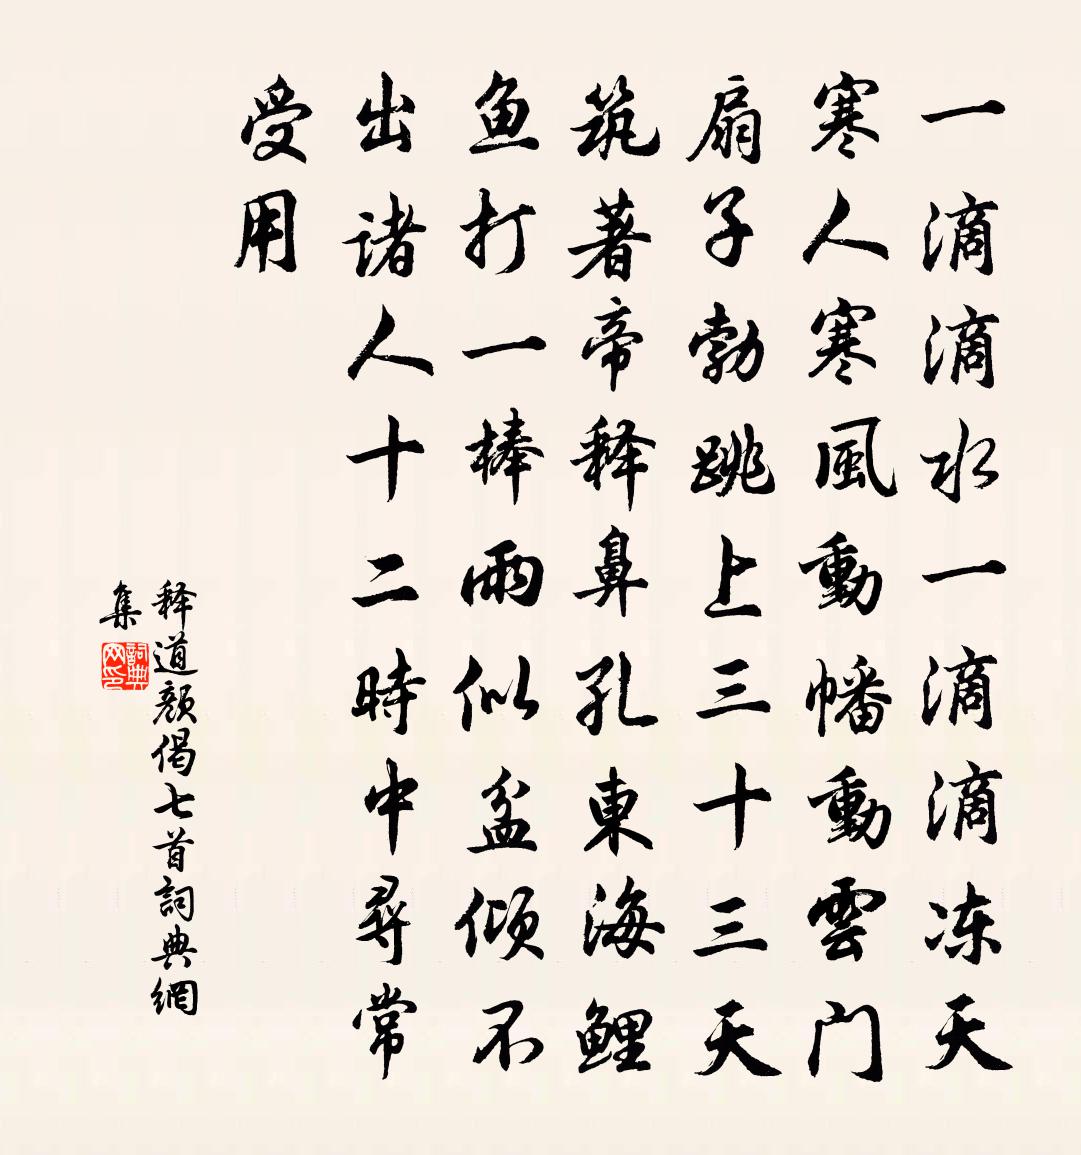 一滴滴水一滴滴冻天
寒人寒風動幡動雲门
扇子勃跳上三十三天
筑著帝释鼻孔東海鲤
鱼打一棒雨似盆倾不
出诸人十二時中尋常
受用
释道颜偈七首詞典網
集
詞典
网印